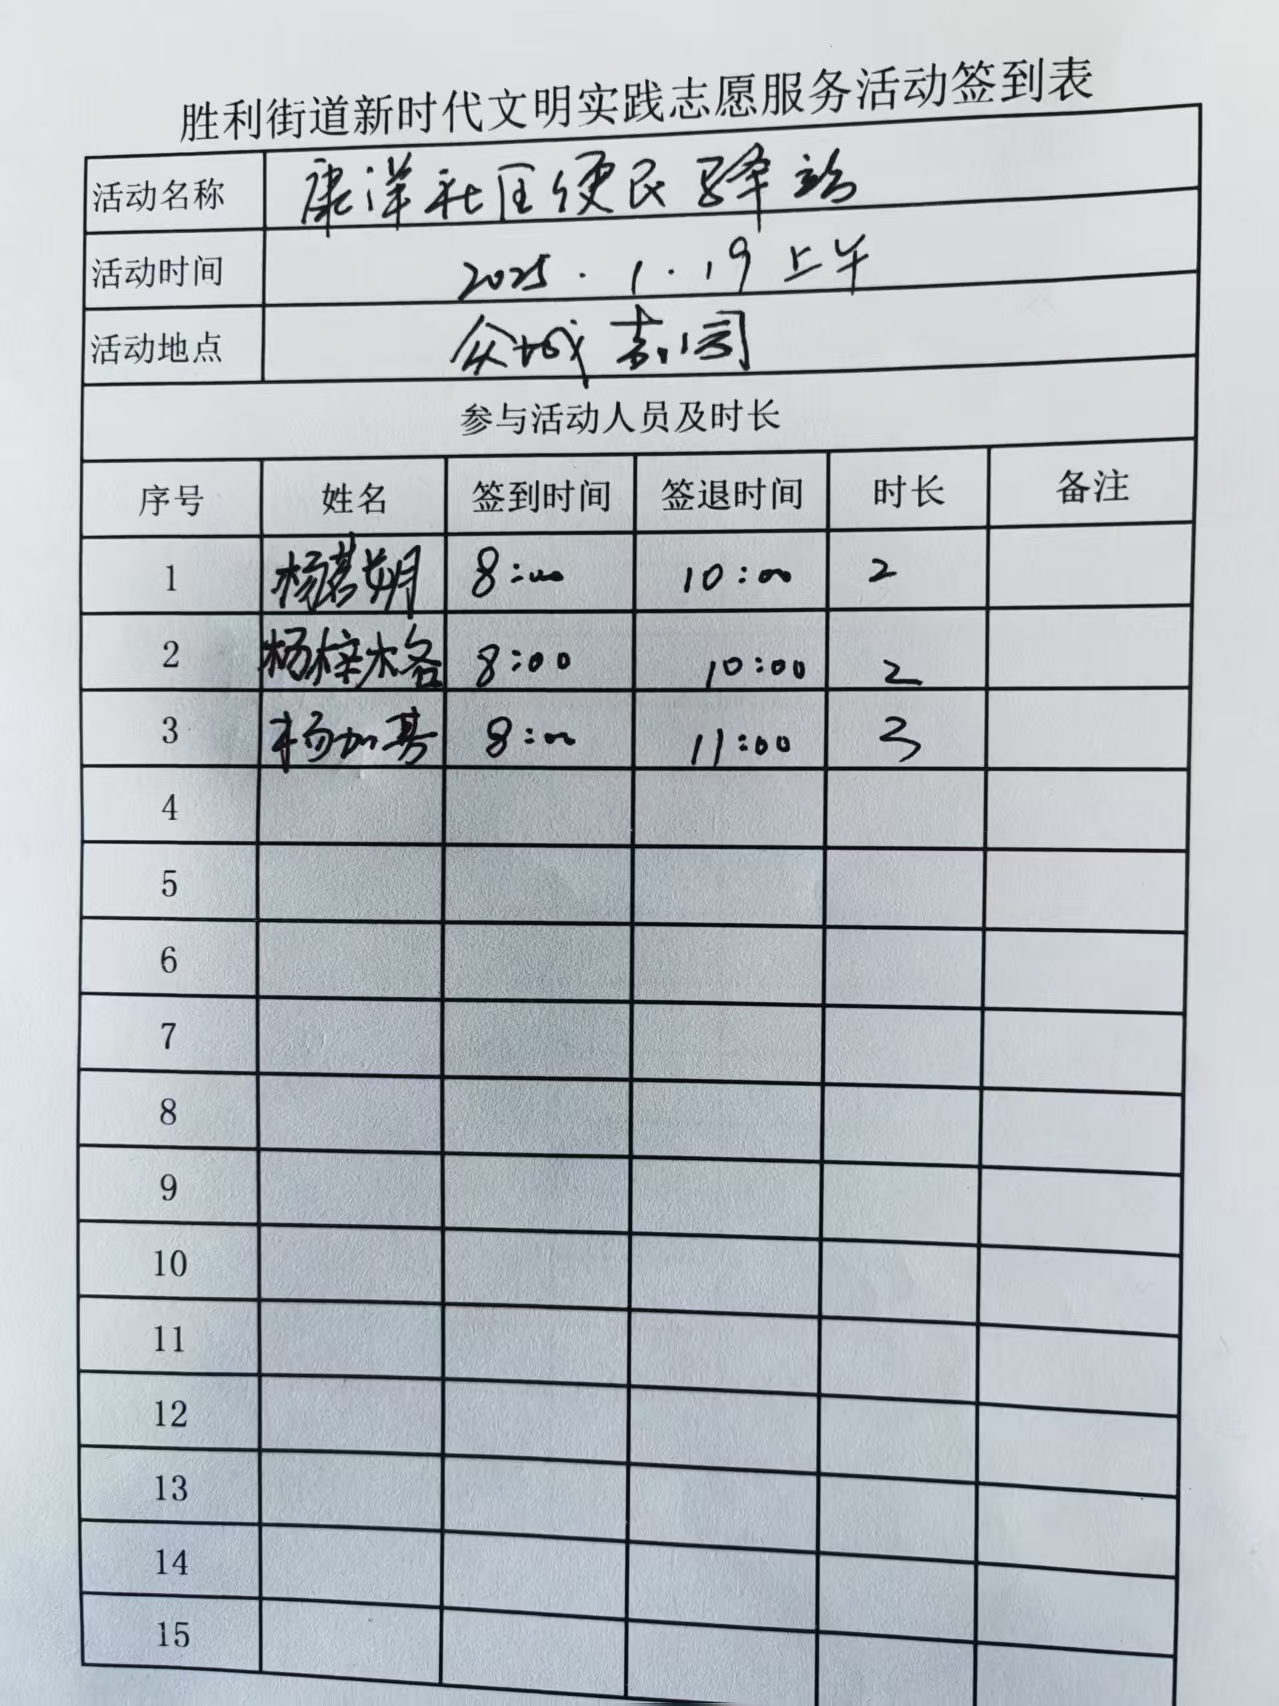 胜利街道新时代文明实践志愿服务活动签到表
活动名称 康洋社区便民驿站
活动时间 2025.1.19上午
活动地点 众城
参与活动人员及时长
序号 姓名 签到时间 签退时间 时长 备注
1 杨茗玥 8:00 10:00 2
2 杨梓格 8:00 10:00 2
3 杨加 8:00 11:00 3
4
5
6
7
8
9
10
11
12
13
14
15